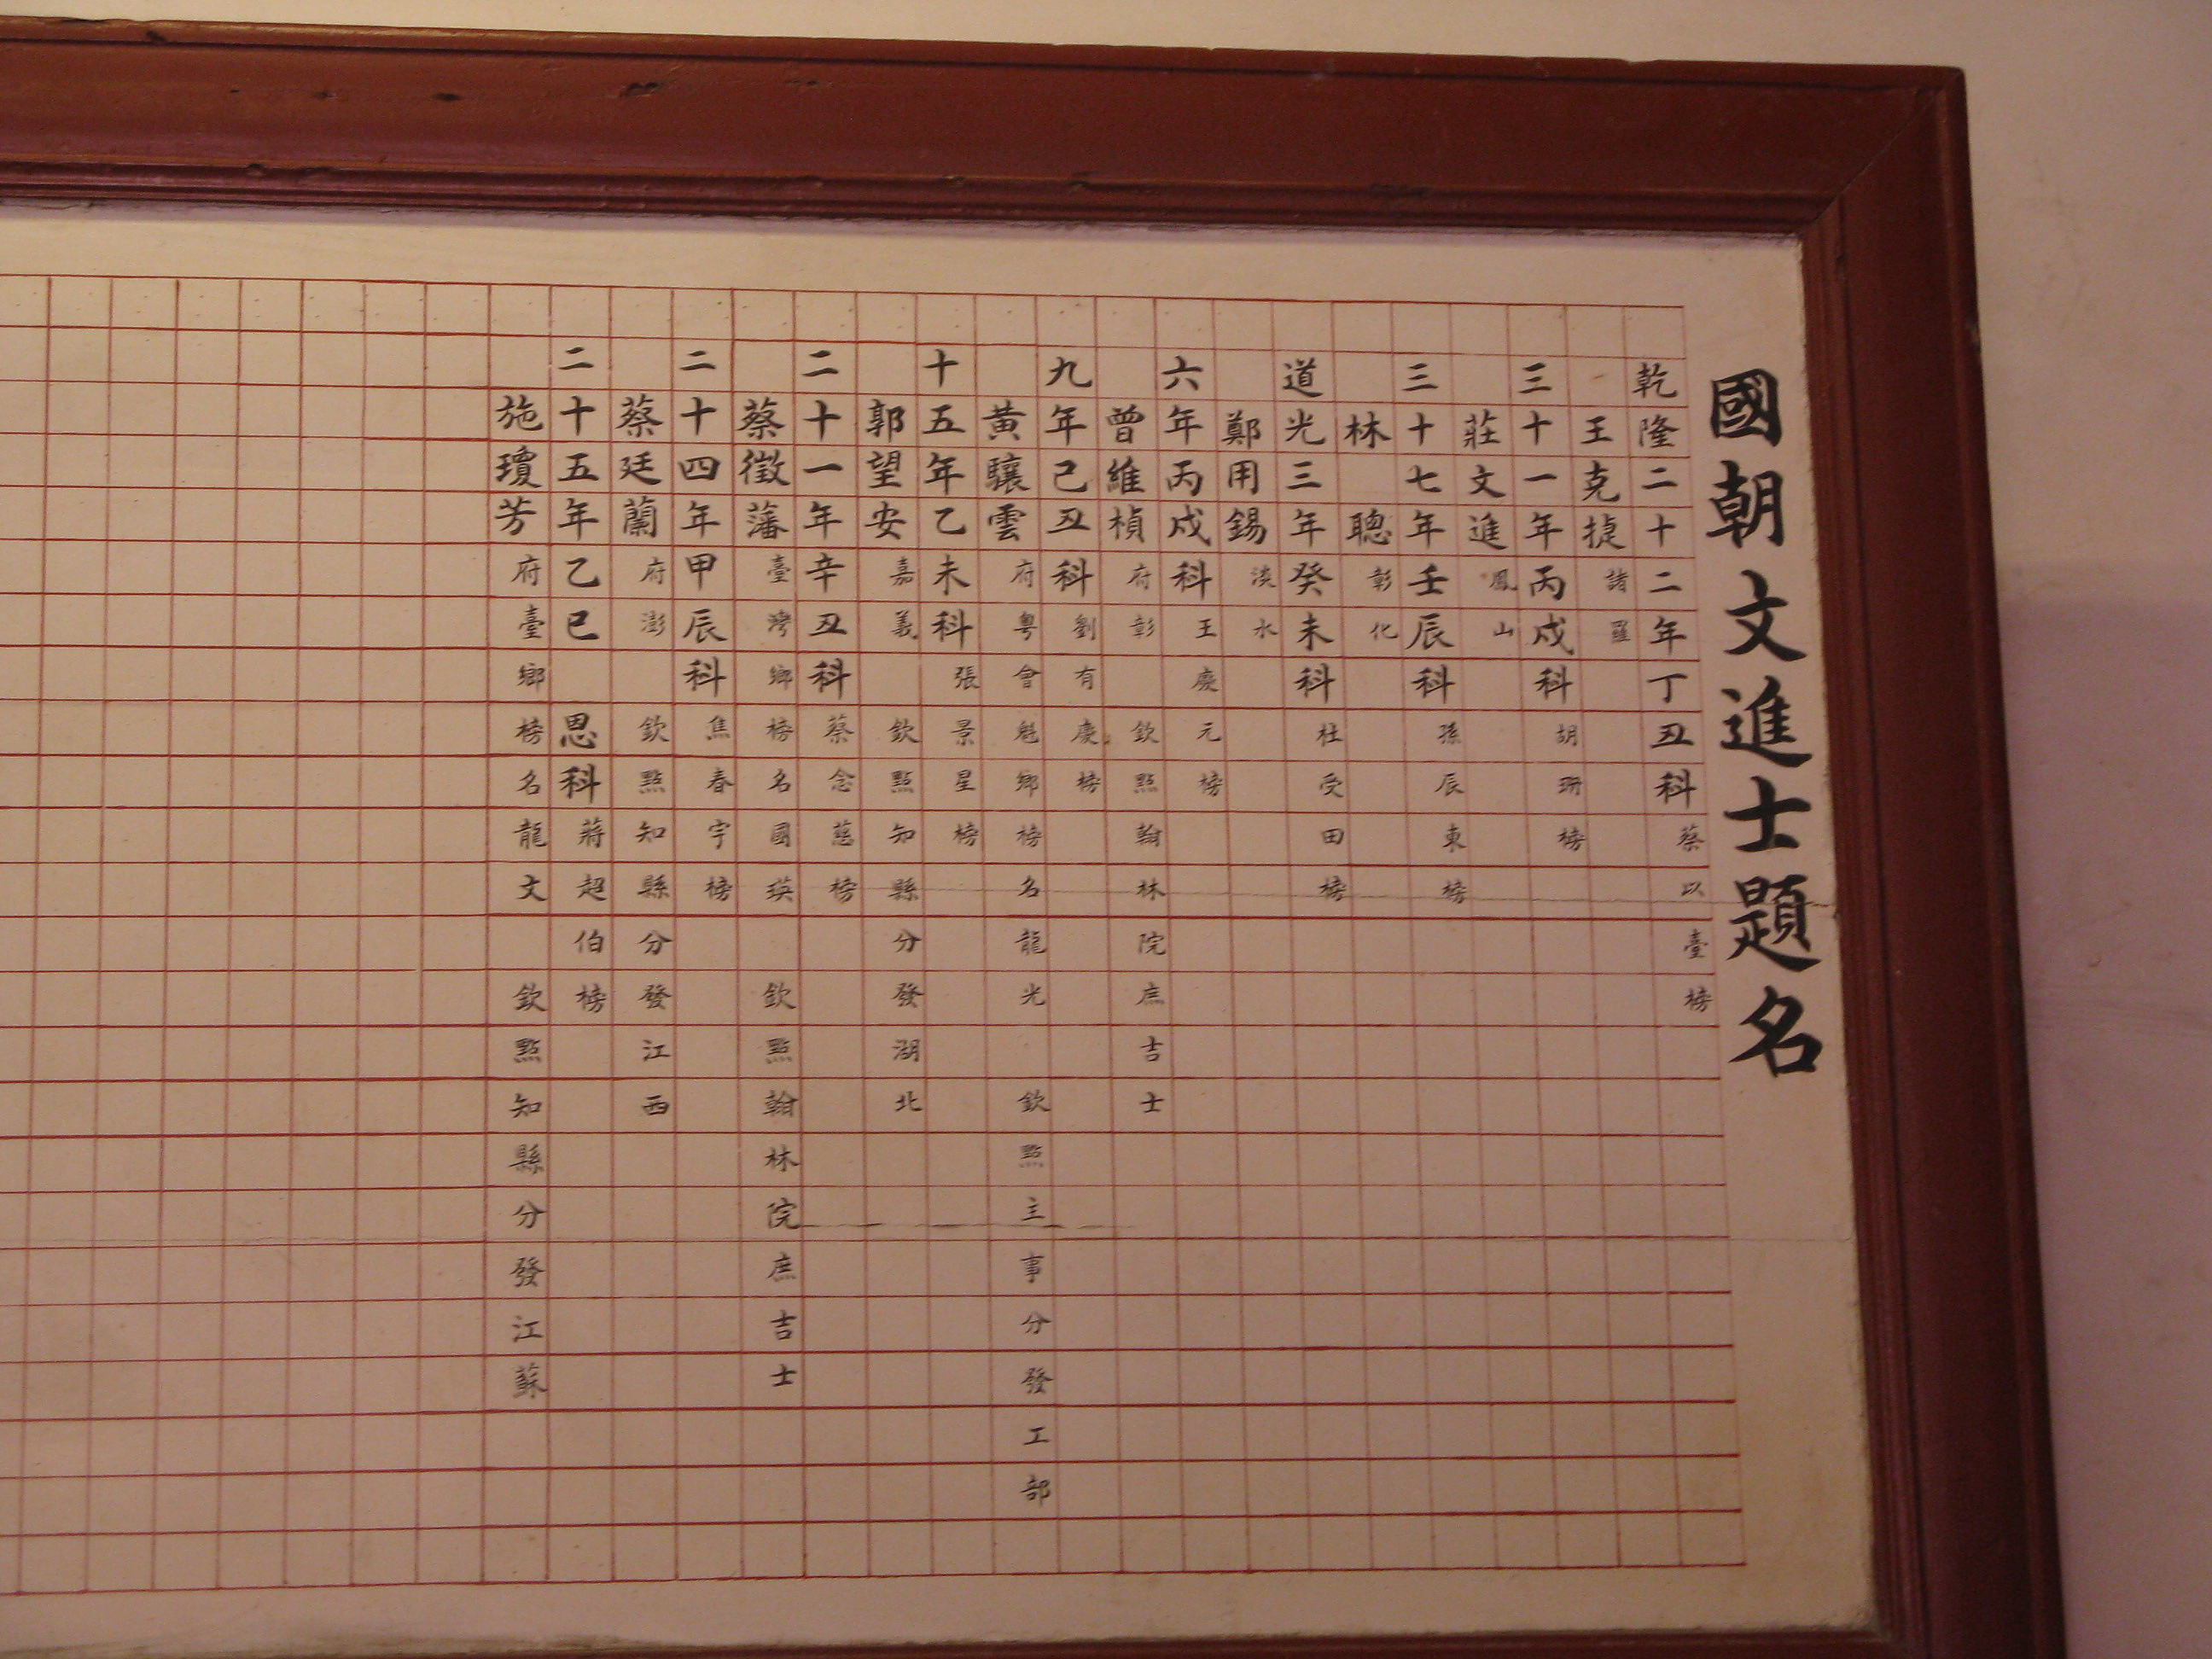 國朝文進士題名
乾隆二十二年丁丑科蔡以臺榜
王克捷諸羅
三十一年丙戌科胡珊榜
莊文進鳳山
三十七年壬辰科孫辰東榜
林聰彰化
道光三年癸未科杜受田榜
鄭用錫淡水
六年丙戌科王慶元榜
曾維楨府彰欽點翰林院庶吉士
九年己丑科劉有慶榜
黃驤雲府粵會魁鄉榜名龍光欽點主事分發工部
十五年乙未科張景星榜
郭望安嘉義欽點知縣分發湖北
二十一年辛丑科蔡念慈榜
蔡徵藩臺灣鄉榜名國瑛欽點翰林院庶吉士
二十四年甲辰科焦春宇榜
蔡廷蘭府澎欽點知縣分發江西
二十五年乙巳恩科蔣超伯榜
施瓊芳府臺鄉榜名龍文欽點知縣分發江蘇